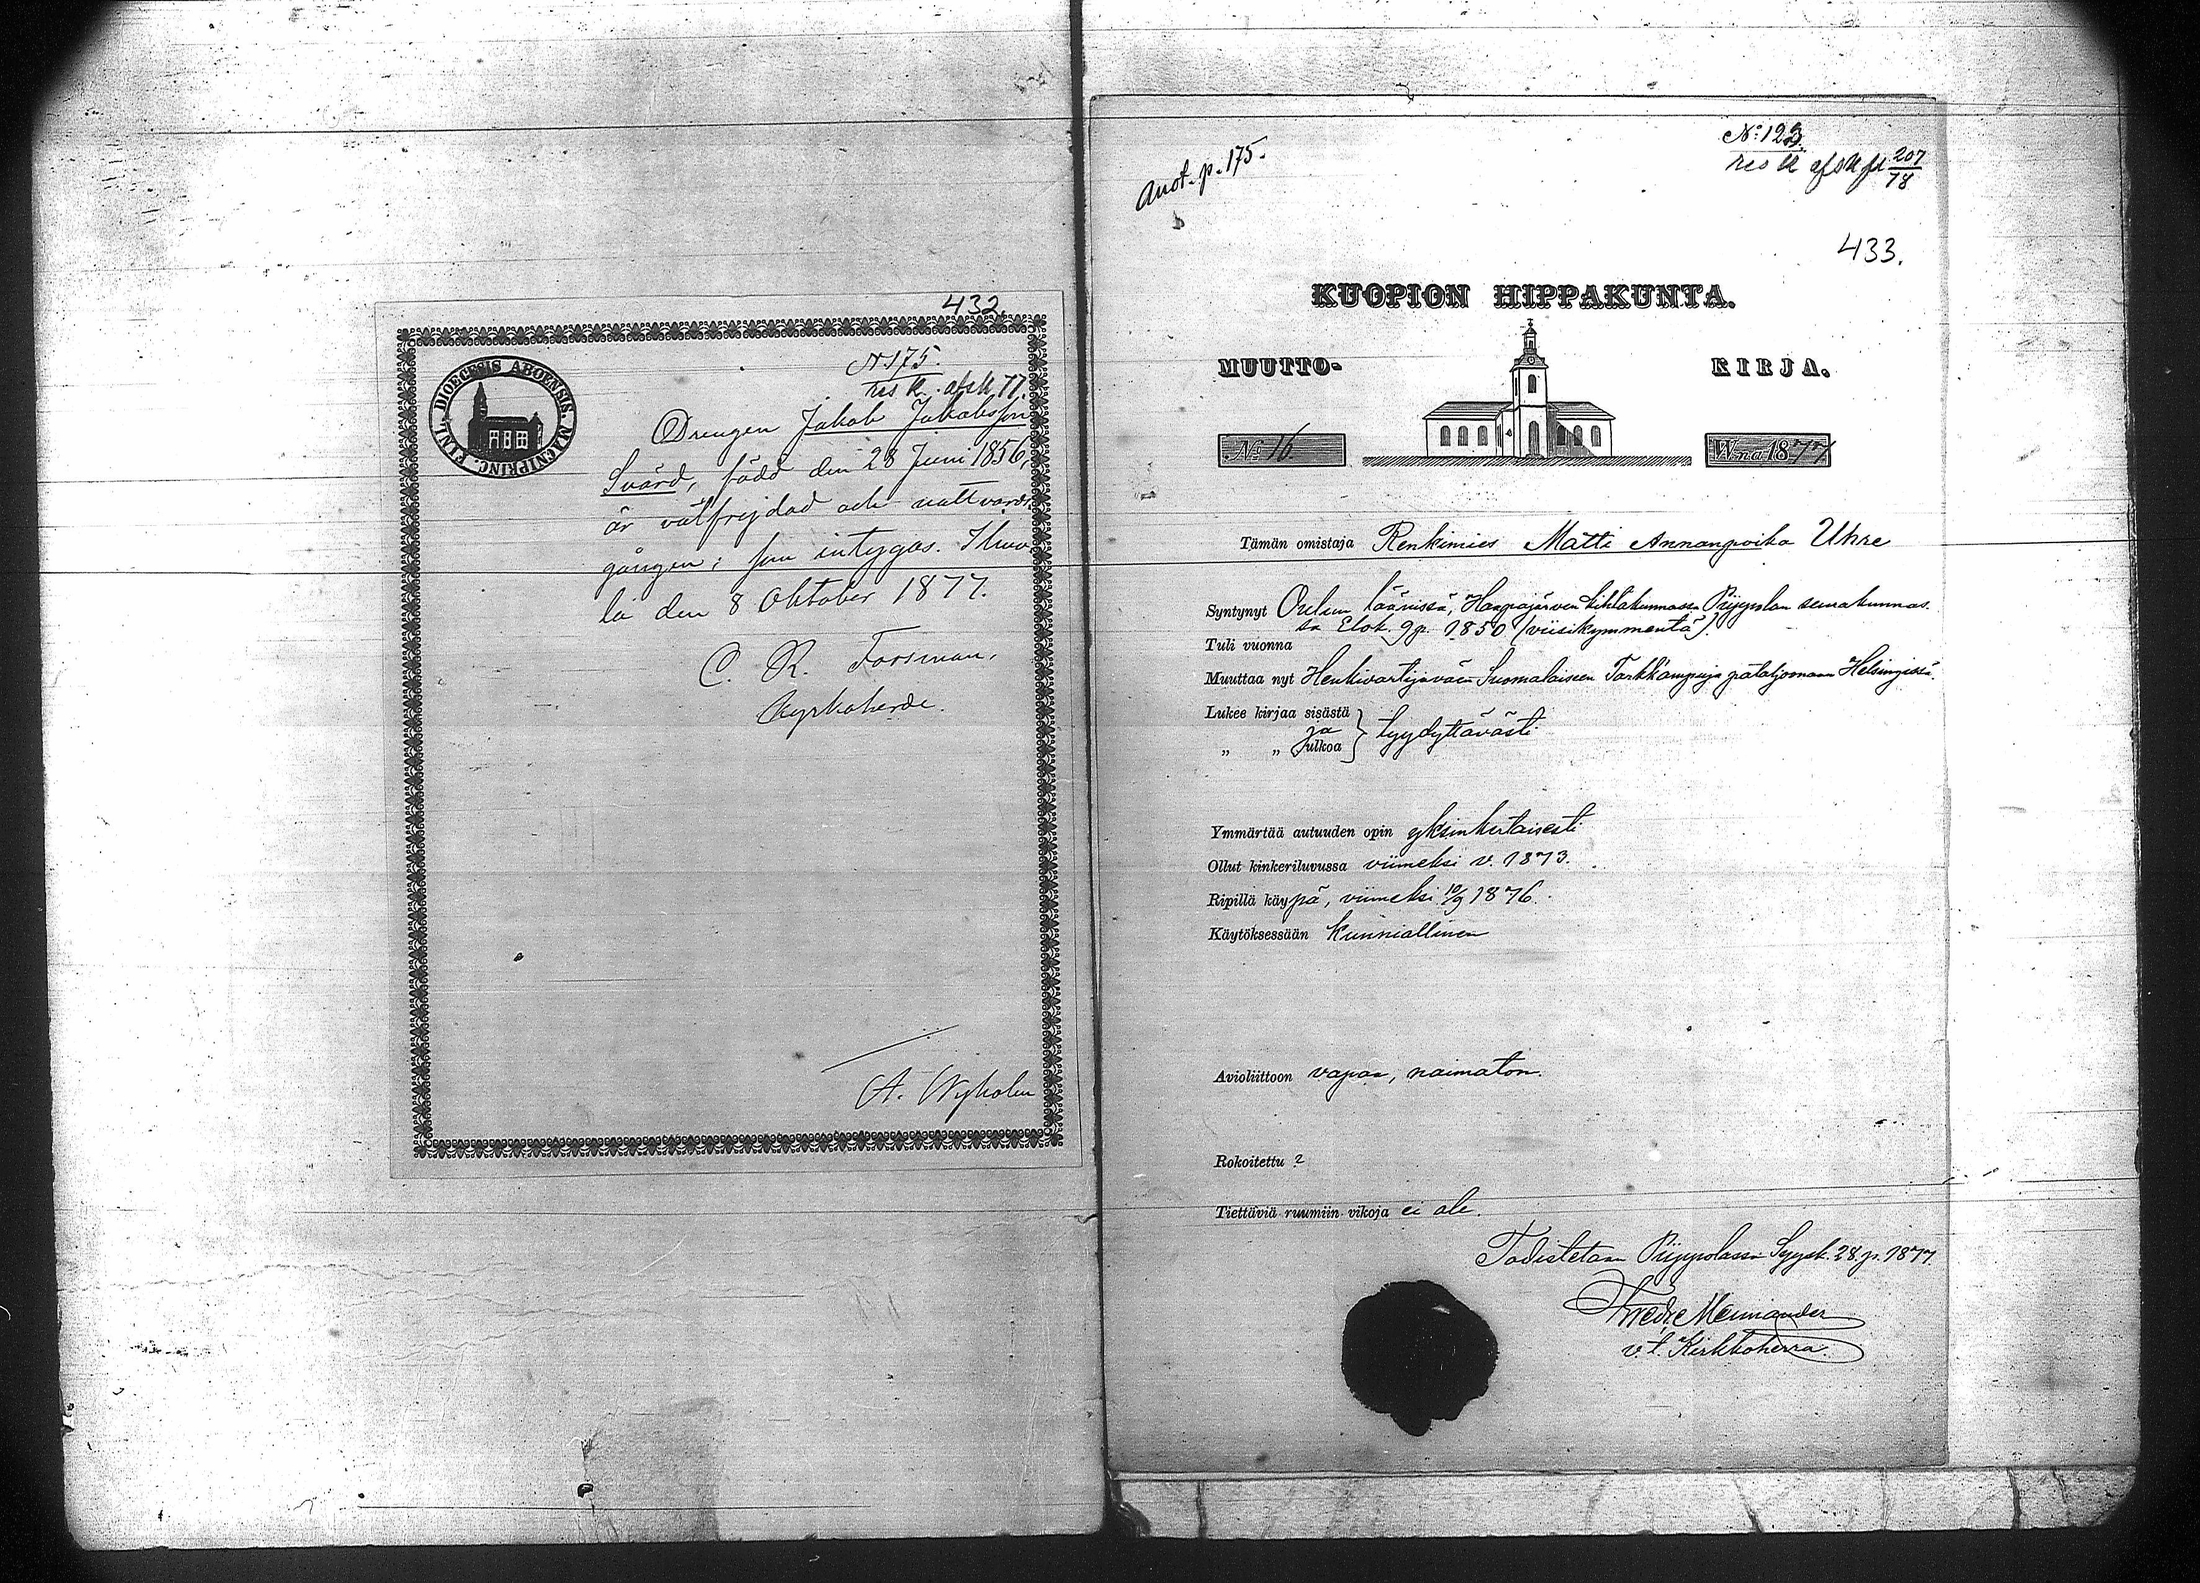 432.
DIOECESIS ABOENSIS. MAGNIPRINC. FINL.
N 175.
res k. afsk 77.
Drengen Jakob Jakobsson
Svärd, född den 28 Juni 1856,
är välfrejdad och nattvards
gången; som intygas. Ilmo
la den 8 Oktober 1877.
C. R. Forsman,
Kyrkoherde.
A. Nyholm
Anot. p. 175.
No: 123.
res k afsk på 207/78
433.
KUOPION HIPPAKUNTA.
MUUTTO- KIRJA.
No 16. Wna 1877
Tämän omistaja Renkimies Matti Annanpoika Uhre
Syntynyt Oulun läänissä, Haapajärven kihlakunnassa Piippolan seurakunnas-
sa Elok. 9 p. 1850 (viisikymmentä).
Tuli vuonna
Muuttaa nyt Henkivartijaväen Suomalaiseen Tarkkampuja pataljoonaan Helsingissä.
Lukee kirjaa sisästä
ja
„ „ ulkoa } tyydyttävästi
Ymmärtää autuuden opin yksinkertaisesti
Ollut kinkeriluvussa viimeksi v. 1873.
Ripillä käypä, viimeksi 10/9 1876.
Käytöksessään kunniallinen
Avioliittoon vapaa, naimaton.
Rokoitettu ?
Tiettäviä ruumiin vikoja ei ole.
Todistetaan Piippolassa Syysk. 28. p. 1877.
Fredr. Mennander
v. t. Kirkkoherra.